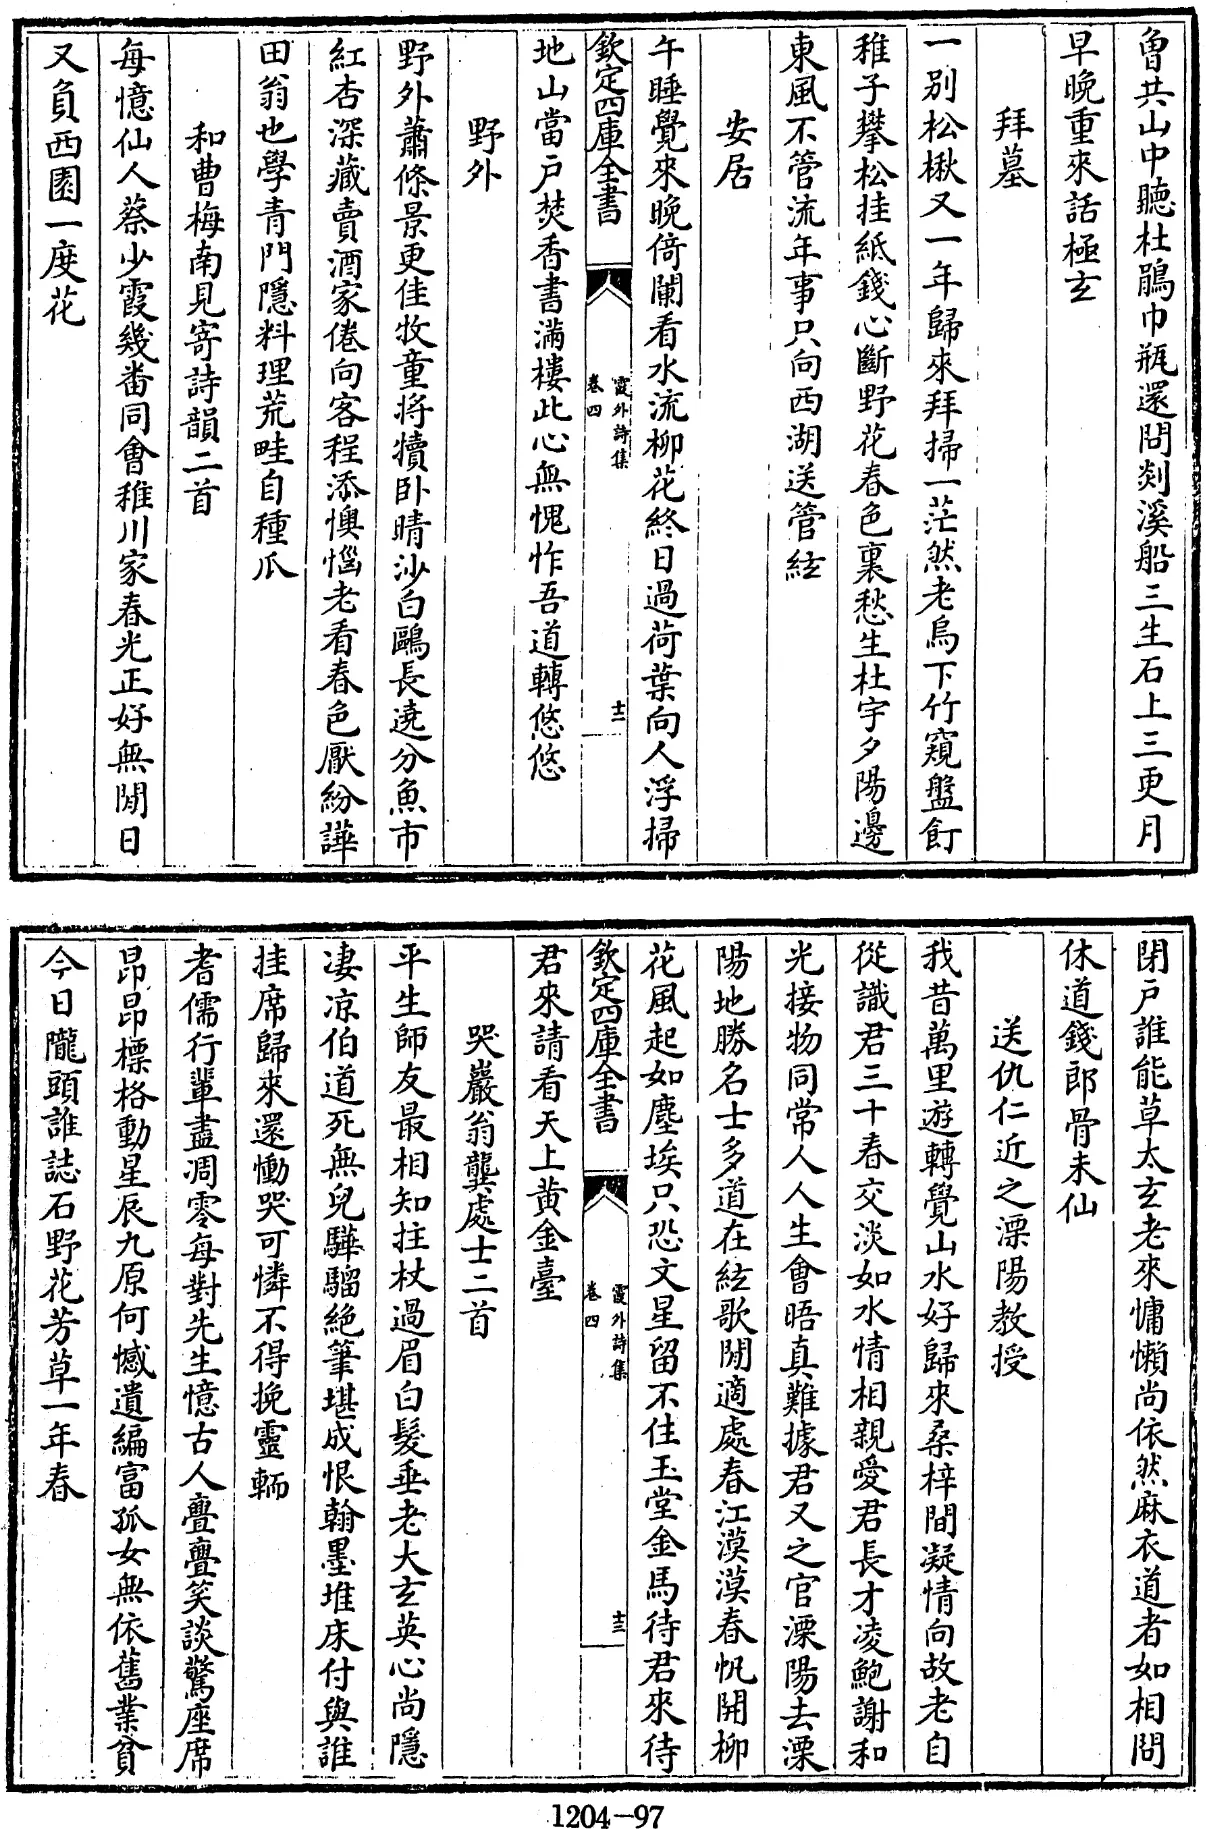 曾共山中聽杜鵑巾瓶還問剡溪船三生石上三更月
早晚重來話極玄
拜墓
一別松楸又一年歸來拜掃一茫然老烏下竹窺盤飣
稚子攀松挂紙錢心斷野花春色裏愁生杜宇夕陽邊
東風不管流年事只向西湖送管絃
安居
午睡覺來晚倚闌看水流柳花終日過荷葉向人浮掃
欽定四庫全書
霞外詩集
卷四
十二
地山當戶焚香書滿樓此心無愧怍吾道轉悠悠
野外
野外蕭條景更佳牧童將犢臥晴沙白鷗長遶分魚市
紅杏深藏賣酒家倦向客程添懊惱老看春色厭紛譁
田翁也學青門隱料理荒畦自種瓜
和曹梅南見寄詩韻二首
每憶仙人蔡少霞幾畨同會稚川家春光正好無閒日
又負西園一度花
閉戶誰能草太玄老來慵懶尚依然麻衣道者如相問
休道錢郎骨未仙
送仇仁近之溧陽教授
我昔萬里遊轉覺山水好歸來桑梓間凝情向故老自
從識君三十春交淡如水情相親愛君長才凌鮑謝和
光接物同常人人生會晤真難據君又之官溧陽去溧
陽地勝名士多道在絃歌閒適處春江漠漠春帆開柳
花風起如塵埃只恐文星留不住玉堂金馬待君來待
欽定四庫全書
霞外詩集
卷四
十三
君來請看天上黃金臺
哭巖翁龔處士二首
平生師友最相知拄杖過眉白髮垂老大玄英心尚隱
凄凉伯道死無兒驊騮絕筆堪成恨翰墨堆床付與誰
挂席歸來還慟哭可憐不得挽靈輀
耆儒行輩盡凋零每對先生憶古人亹亹笑談驚座席
昂昂標格動星辰九原何憾遺編富孤女無依舊業貧
今日隴頭誰誌石野花芳草一年春
1204-97